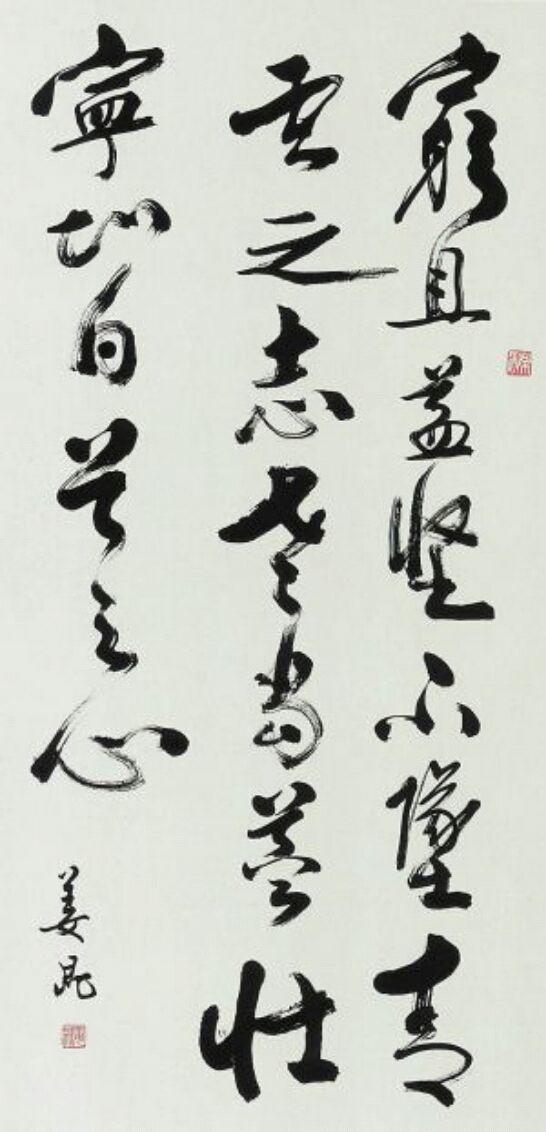 窮且益堅不墜青
雲之志老當益壯
寧知白首之心
姜昆